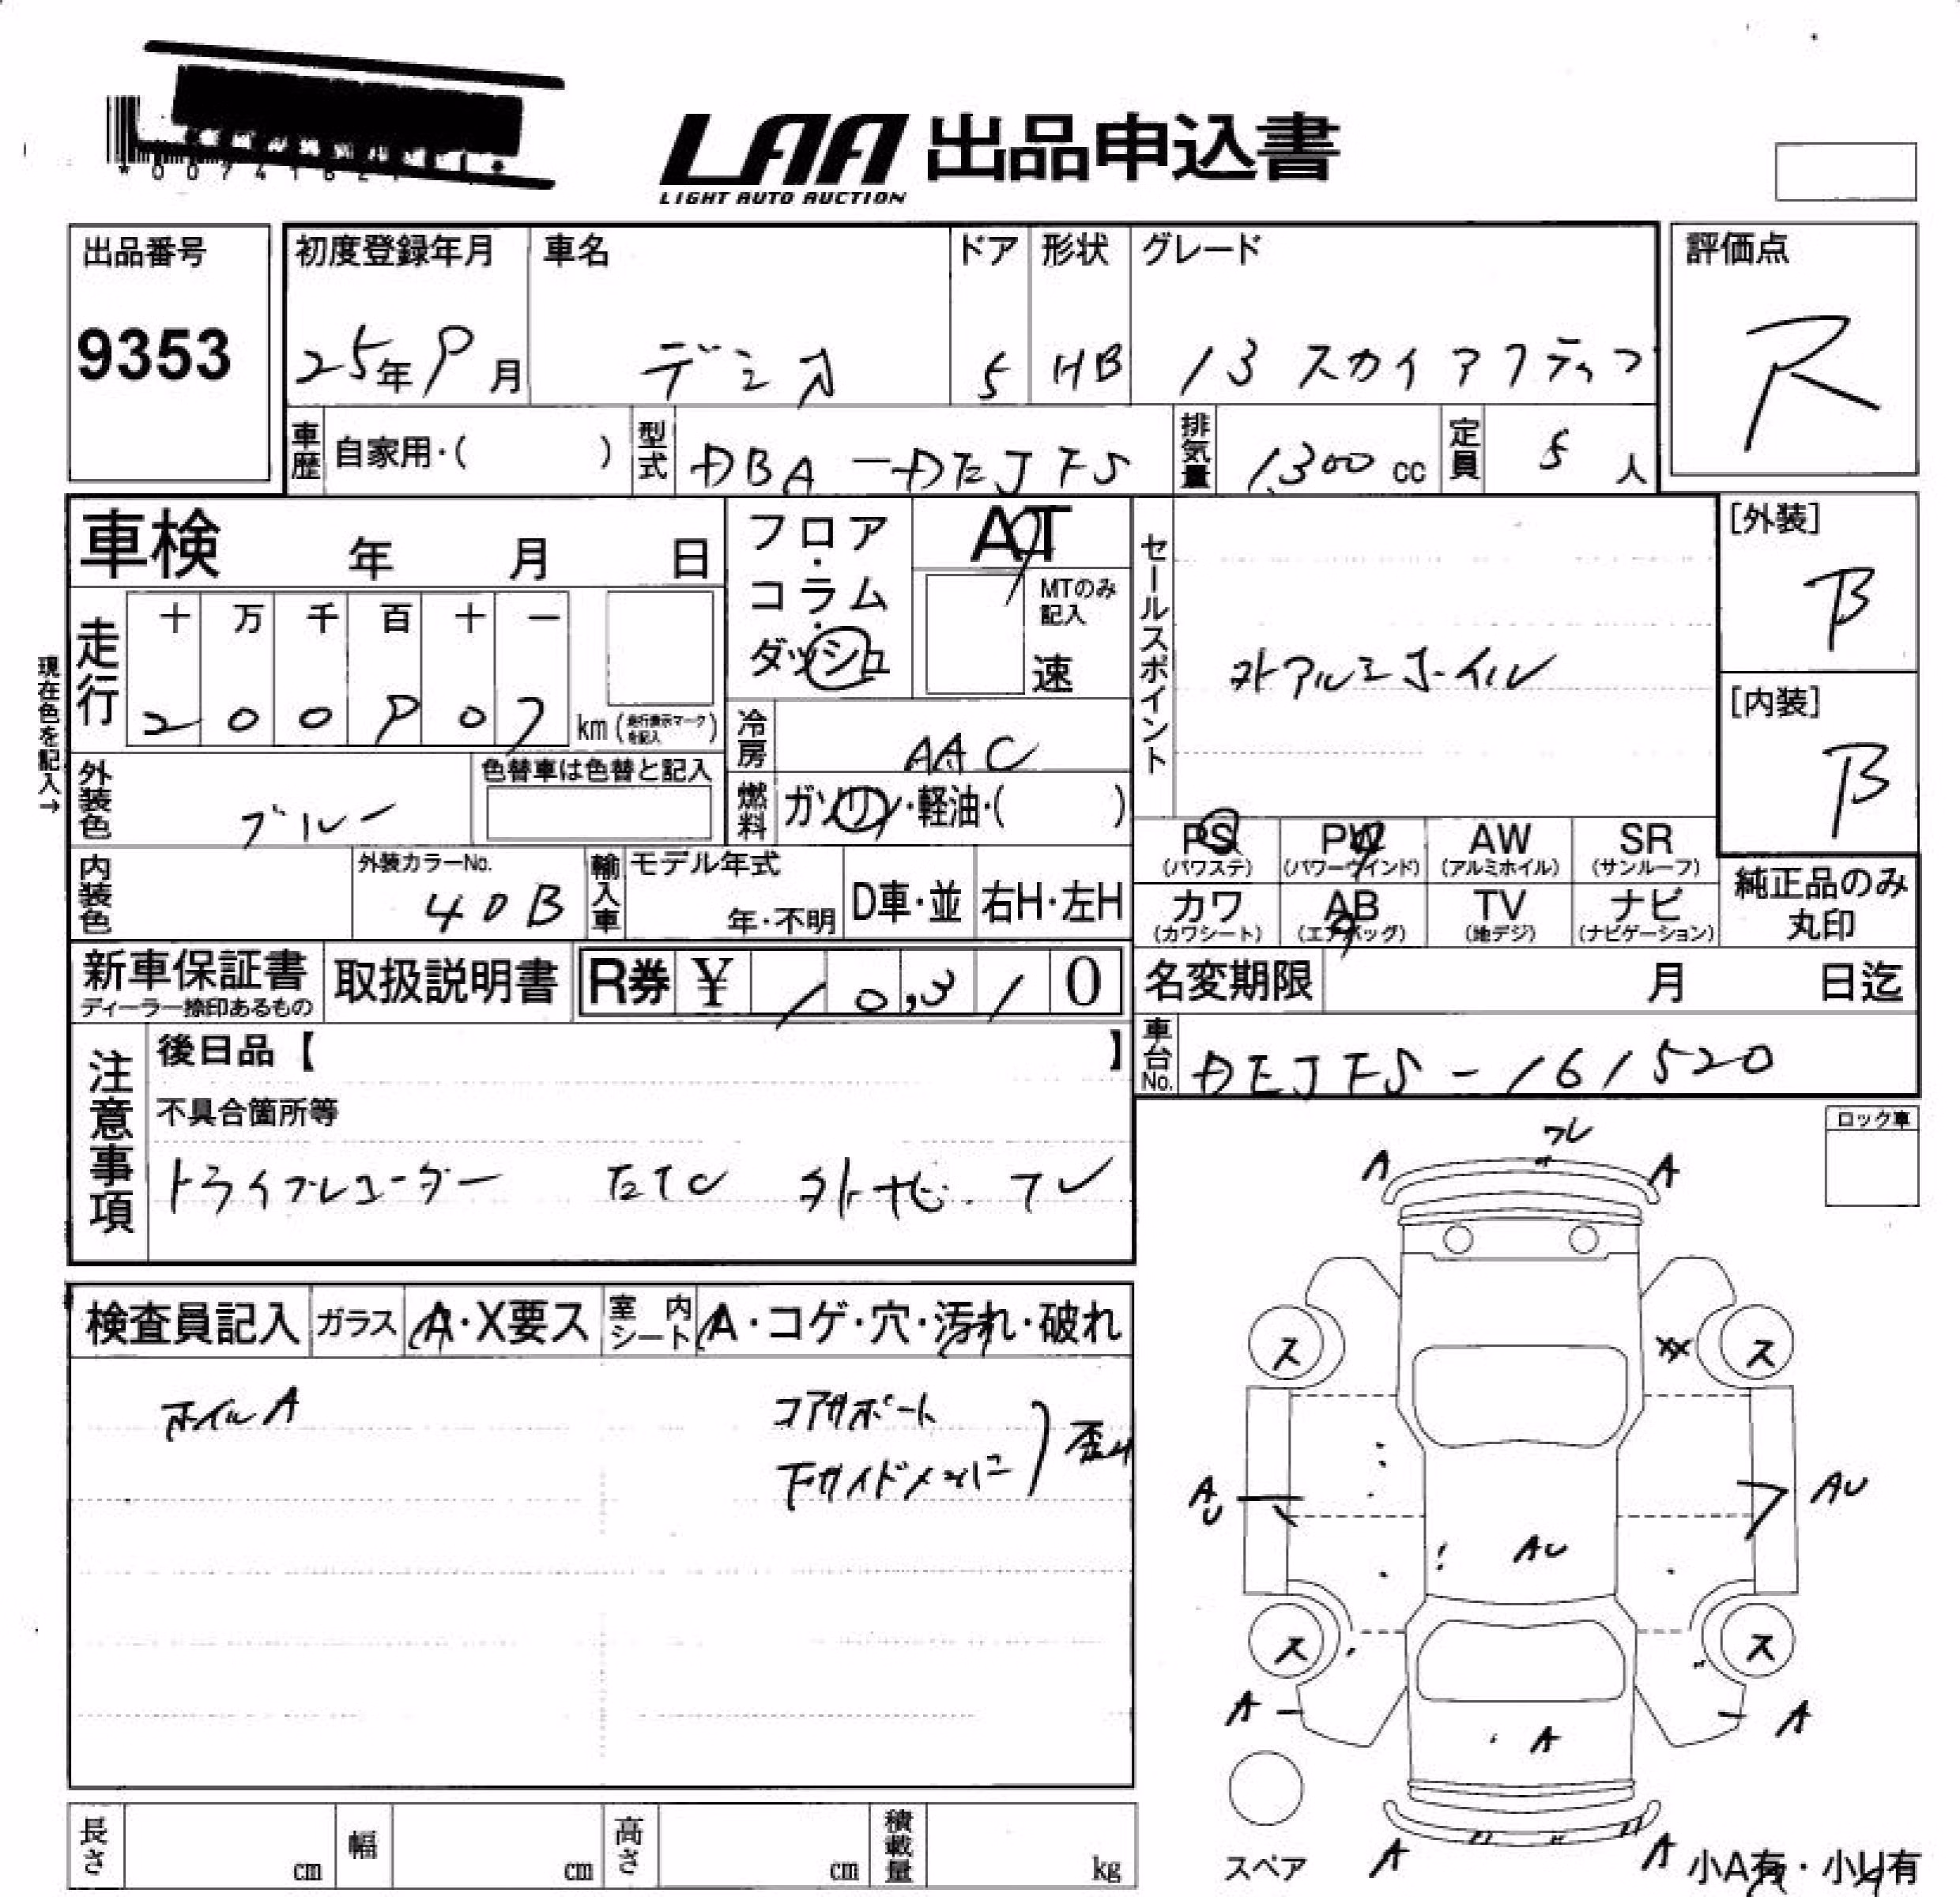 LAA 出品申込書
LIGHT AUTO AUCTION
出品番号
9353
初度登録年月 車名 ドア 形状 グレード
25年9月 デミオ 5 HB 13 スカイアクティブ
評価点
R
車歴 自家用・( ) 型式 DBA-DEJFS 排気量 1,300 cc 定員 5 人
車検 年 月 日
フロア・コラム・ダッシュ
AT
MTのみ記入
速
セールスポイント
外アルミホイル
[外装]
B
[内装]
B
現在色を記入→
走行 十 万 千 百 十 一
2 0 0 9 0 7 km (走行表示マークを記入)
冷房 AAC
外装色 ブルー 色替車は色替と記入
燃料 ガソリン・軽油・( )
PS (パワステ) PW (パワーウインド) AW (アルミホイル) SR (サンルーフ)
カワ (カワシート) AB (エアバッグ) TV (地デジ) ナビ (ナビゲーション)
純正品のみ丸印
内装色 外装カラーNo. 40B 輸入車 モデル年式 年・不明 D車・並 右H・左H
新車保証書
ディーラー捺印あるもの
取扱説明書 R券 ¥ 10,310
名変期限 月 日迄
車台No. DEJFS-161520
注意事項
後日品【 】
不具合箇所等
ドライブレコーダー ETC 外
ロック車
検査員記入 ガラス A・X要ス 室内シート A・コゲ・穴・汚れ・破れ
ホイルA
コアサポート
下サイドメンバー ) 歪み
ワレ
A A
ス XX ス
AU AU
AU
ス ス
A A
A
A A
スペア
小A有・小U有
長さ cm 幅 cm 高さ cm 積載量 kg